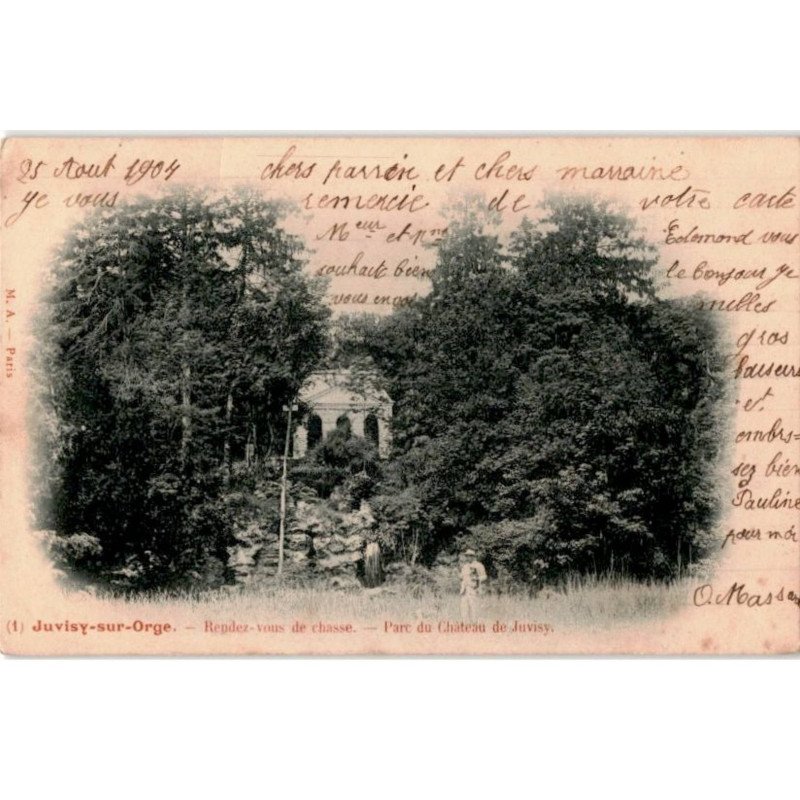 25 Aout 1904 chers parrein et chers marraine
ye vous remercie de votre carte
Meur et
Edmond vous
souhait bien
le bonjour ye
vous en
milles
gros
baiseurs
et
ombrs=
sez bien
Pauline
pour moi
O Massa
M. A. — Paris
(1) Juvisy-sur-Orge. — Rendez-vous de chasse. — Parc du Château de Juvisy.